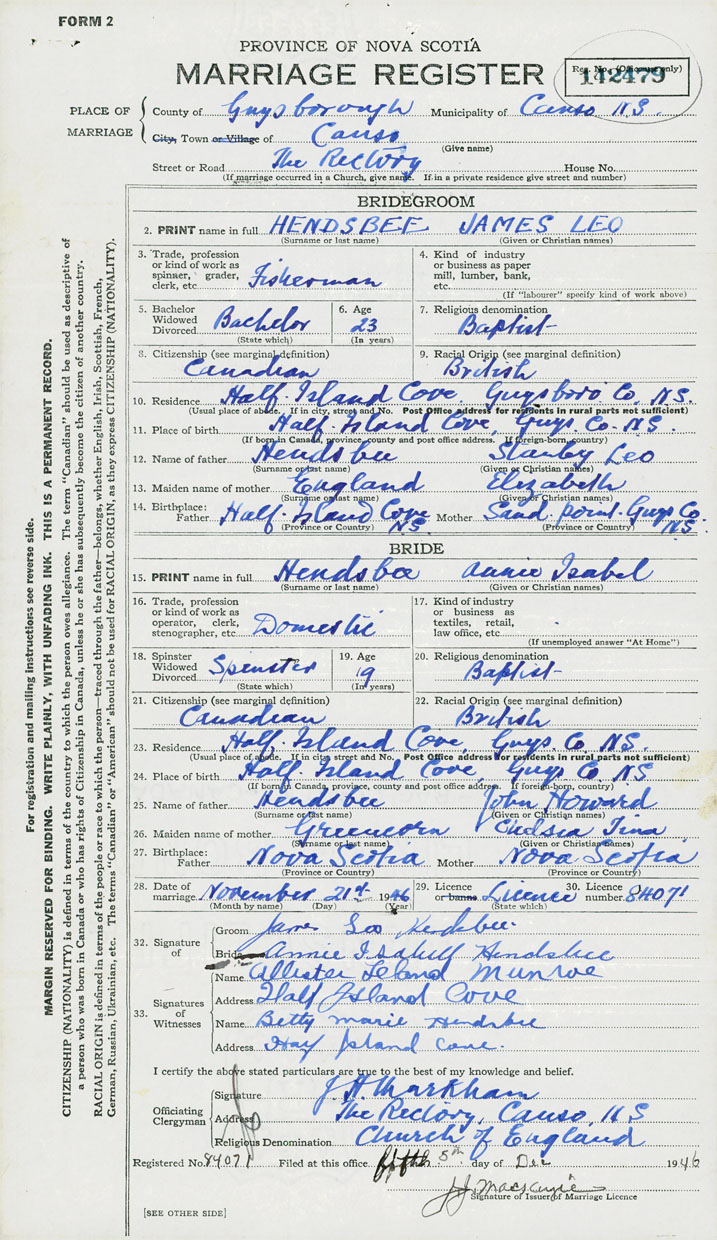 FORM 2
PROVINCE OF NOVA SCOTIA
MARRIAGE REGISTER
Reg. No. (Office use only)
142479
PLACE OF MARRIAGE
County of Guysborough Municipality of Canso N.S.
City, Town or Village of Canso
(Give name)
Street or Road The Rectory House No.
(If marriage occurred in a Church, give name. If in a private residence give street and number)
BRIDEGROOM
2. PRINT name in full HENDSBEE JAMES LEO
(Surname or last name) (Given or Christian names)
3. Trade, profession or kind of work as spinner, grader, clerk, etc. Fisherman
4. Kind of industry or business as paper mill, lumber, bank, etc.
(If "labourer" specify kind of work above)
5. Bachelor Widowed Divorced Bachelor
(State which)
6. Age 23
(In years)
7. Religious denomination
Baptist
8. Citizenship (see marginal definition)
Canadian
9. Racial Origin (see marginal definition)
British
10. Residence Half-Island Cove, Guysboro Co, N.S.
(Usual place of abode. If in city, street and No. Post Office address for residents in rural parts not sufficient)
11. Place of birth Half Island Cove, Guys. Co. N.S.
(If born in Canada, province, county and post office address. If foreign-born, country)
12. Name of father Hendsbee Stanley Leo
(Surname or last name) (Given or Christian names)
13. Maiden name of mother England Elizabeth
(Surname or last name) (Given or Christian names)
14. Birthplace: Father Half-Island Cove N.S. Mother Sand point-Guys Co. N.S.
(Province or Country) (Province or Country)
BRIDE
15. PRINT name in full Hendsbee Annie Isabel
(Surname or last name) (Given or Christian names)
16. Trade, profession or kind of work as operator, clerk, stenographer, etc. Domestic
17. Kind of industry or business as textiles, retail, law office, etc.
(If unemployed answer "At Home")
18. Spinster Widowed Divorced Spinster
(State which)
19. Age 19
(In years)
20. Religious denomination
Baptist
21. Citizenship (see marginal definition)
Canadian
22. Racial Origin (see marginal definition)
British
23. Residence Half-Island Cove, Guys. Co N.S.
(Usual place of abode. If in city, street and No. Post Office address for residents in rural parts not sufficient)
24. Place of birth Half-Island Cove, Guys Co. N.S
(If born in Canada, province, county and post office address. If foreign-born, country)
25. Name of father Hendsbee John Howard
(Surname or last name) (Given or Christian names)
26. Maiden name of mother Greencorn Chelsia Tina
(Surname or last name) (Given or Christian names)
27. Birthplace: Father Nova Scotia Mother Nova Scotia
(Province or Country) (Province or Country)
28. Date of marriage November 21st 1946
(Month by name) (Day) (Year)
29. Licence or banns Licence
(State which)
30. Licence number 84071
32. Signature of
Groom James Leo Hendsbee
Bride Annie Isabell Hendsbee
33. Signatures of Witnesses
Name Allister Leland Munroe
Address Half Island Cove
Name Betty Marie Hendsbee
Address Hay Island Cove.
I certify the above stated particulars are true to the best of my knowledge and belief.
Officiating Clergyman
Signature J.H. Markham
Address The Rectory, Canso, N S
Religious Denomination Church of England
Registered No. 84071 Filed at this office fifth 5th day of Dec 1946
Signature of Issuer of Marriage Licence
[SEE OTHER SIDE]
For registration and mailing instructions see reverse side.
MARGIN RESERVED FOR BINDING. WRITE PLAINLY, WITH UNFADING INK. THIS IS A PERMANENT RECORD.
CITIZENSHIP (NATIONALITY) is defined in terms of the country to which the person owes allegiance. The term "Canadian" should be used as descriptive of
a person who was born in Canada or who has rights of Citizenship in Canada, unless he or she has subsequently become the citizen of another country.
RACIAL ORIGIN is defined in terms of the people or race to which the person—traced through the father—belongs, whether English, Irish, Scottish, French,
German, Russian, Ukrainian, etc. The terms "Canadian" or "American" should not be used for RACIAL ORIGIN, as they express CITIZENSHIP (NATIONALITY).